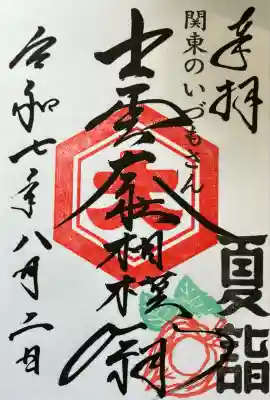 奉拝
関東のいづもさん
出雲大社相模分祠
夏詣
令和七年八月二日